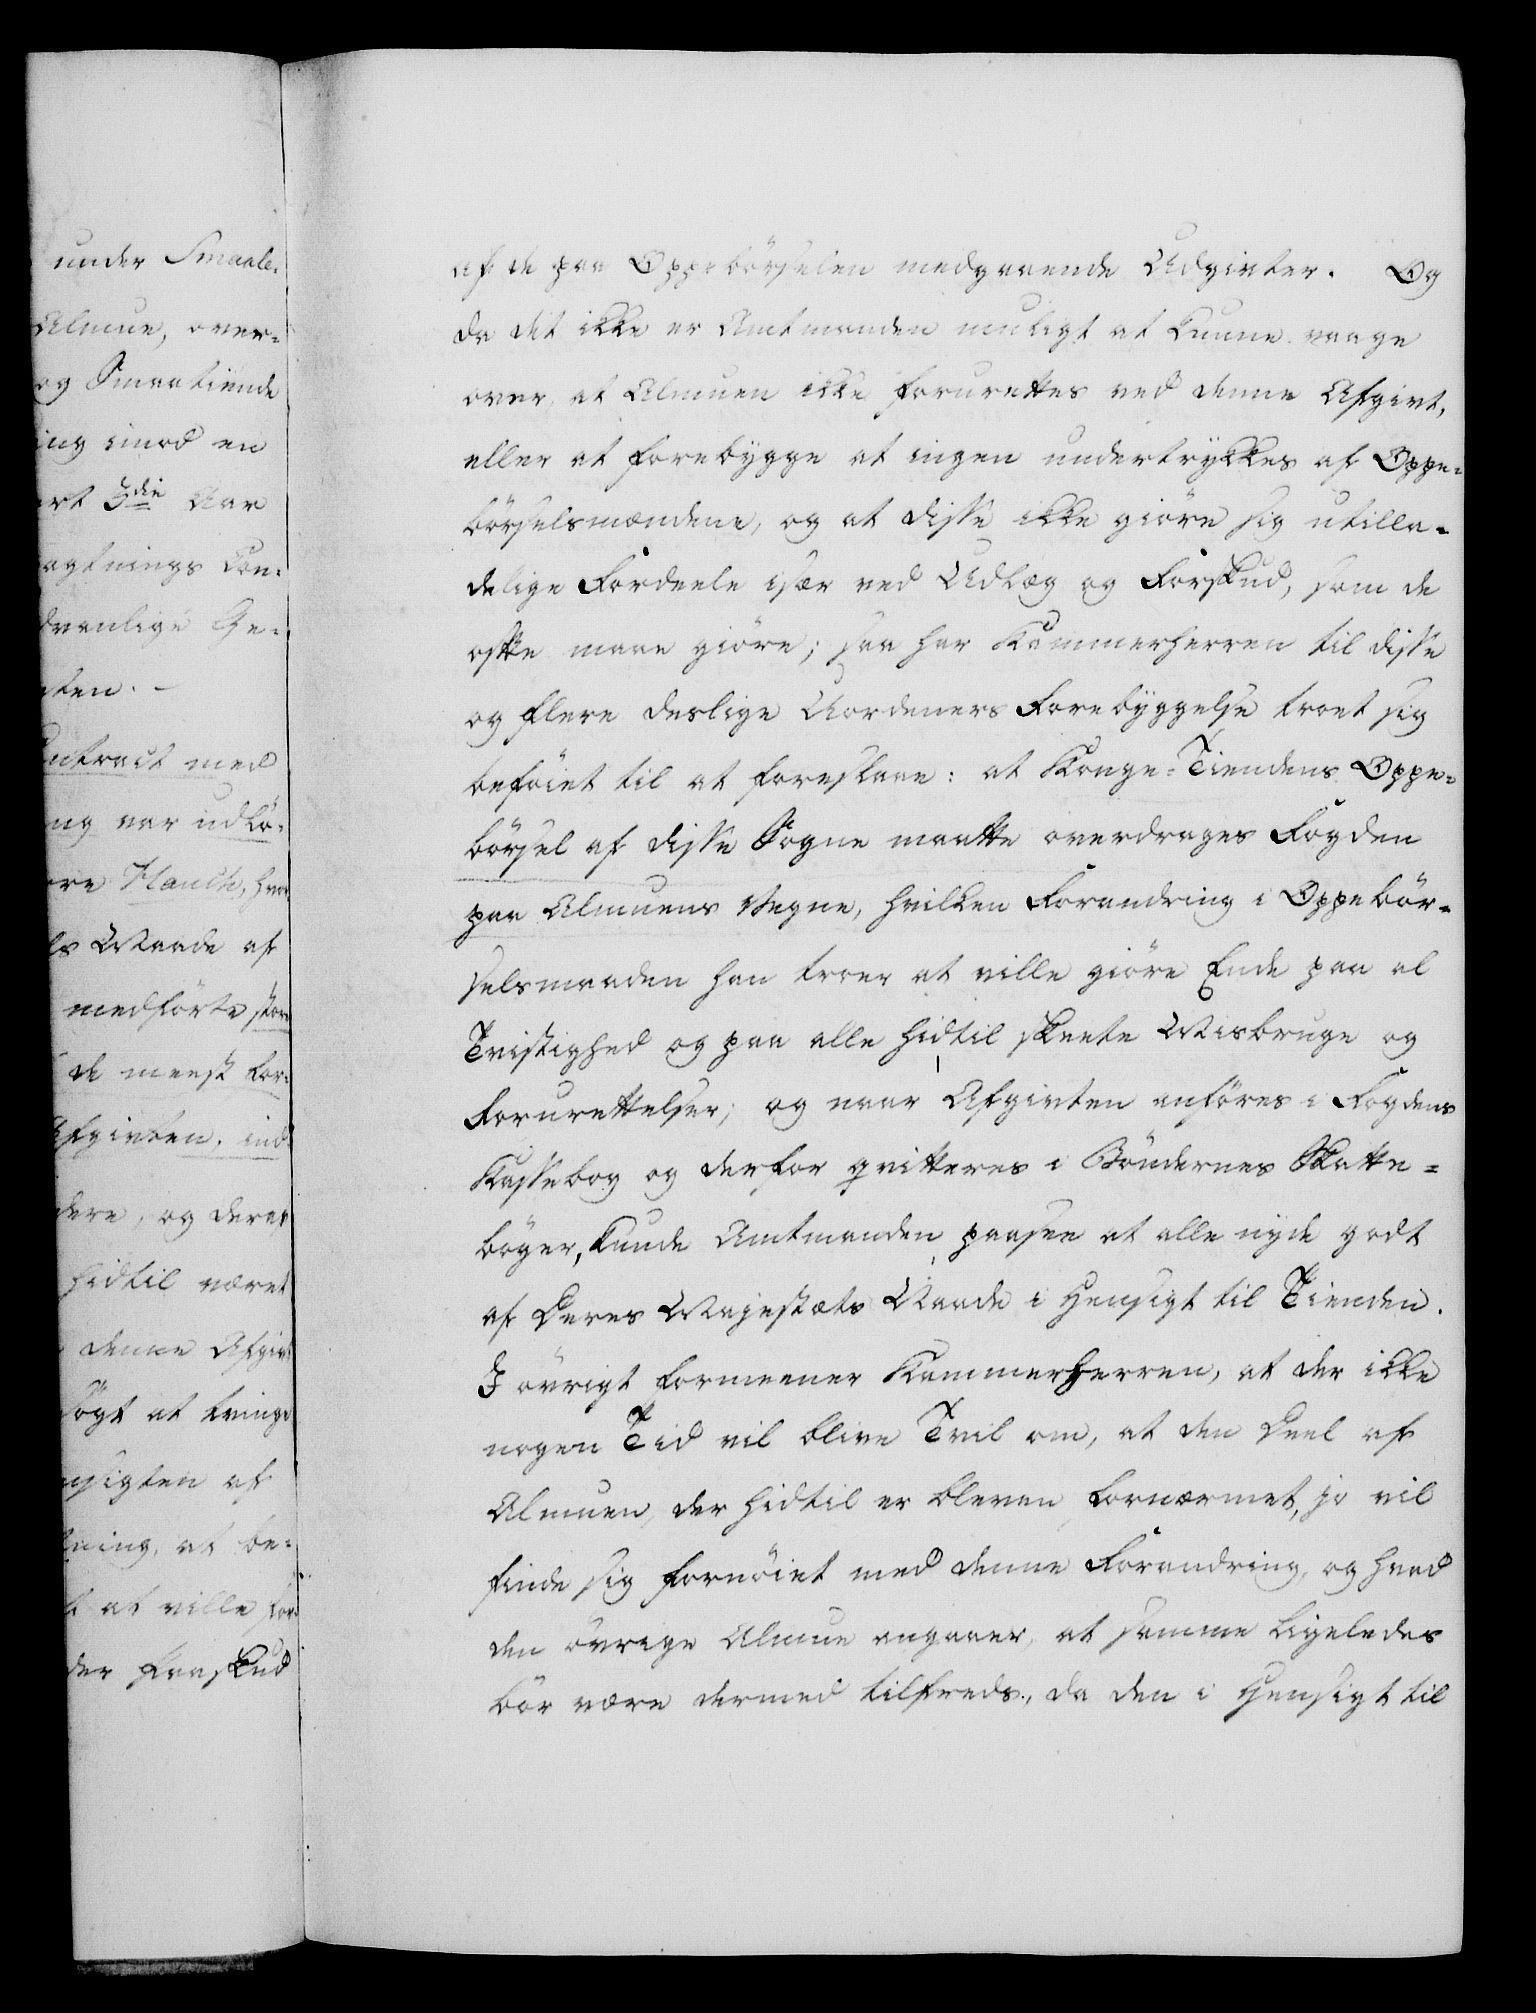 under Smaale-
Almue, over-
og Smaatiende
ing imod en
ert 3die Aar
agtnings Con-
dvanlige Ge-
ten. -
ontract med
ng var udlö-
ore Hauch, hvor
ls Maade af
medförte store
de meest for-
Afgivten, ind
dere, og deraf
hidtil været
denne Afgivt
sögt at tvinge
nsigten af
ning, at be-
at ville for-
der Forskud
af de paa Oppebörselen medgaaende Udgivter. Og
da det ikke er Amtmanden muligt at kunne vaage
over, at Almuen ikke forurettes ved denne Afgivt,
eller at forebygge at ingen undertrykkes af Oppe-
börselsmændene, og at disse ikke giöre sig utilla-
delige Fordeele især ved Udlæg og Forskud, som de
ofte maae giöre; saa har Kammerherren til disse
og flere deslige Uordeners Forebyggelse troet sig
beföiet til at foreslaae: at Konge-Tiendens Oppe-
börsel af disse Sogne maatte overdrages Fogden
paa Almuens Vegne, hvilken Forandring i Oppebör-
selsmaaden han troer at ville giöre Ende paa al
Tvistighed og paa alle hidtil skeete Misbruge og
Forurettelser; og naar Afgivten anföres i Fogdens
Kassebog og derfor qvitteres i Böndernes Skatte-
böger, kunde Amtmanden paasee at alle nyde godt
af Deres Majestæts Naade i Hensigt til Tienden.
I övrigt formeener Kammerherren, at der ikke
nogen Tid vil blive Tvil om, at den Deel af
Almuen, der hidtil er bleven fornærmet, jo vil
finde sig fornöiet med denne Forandring, og hvad
den övrige Almue angaaer, at samme ligeledes
bör være dermed tilfreds, da den i Hensigt til